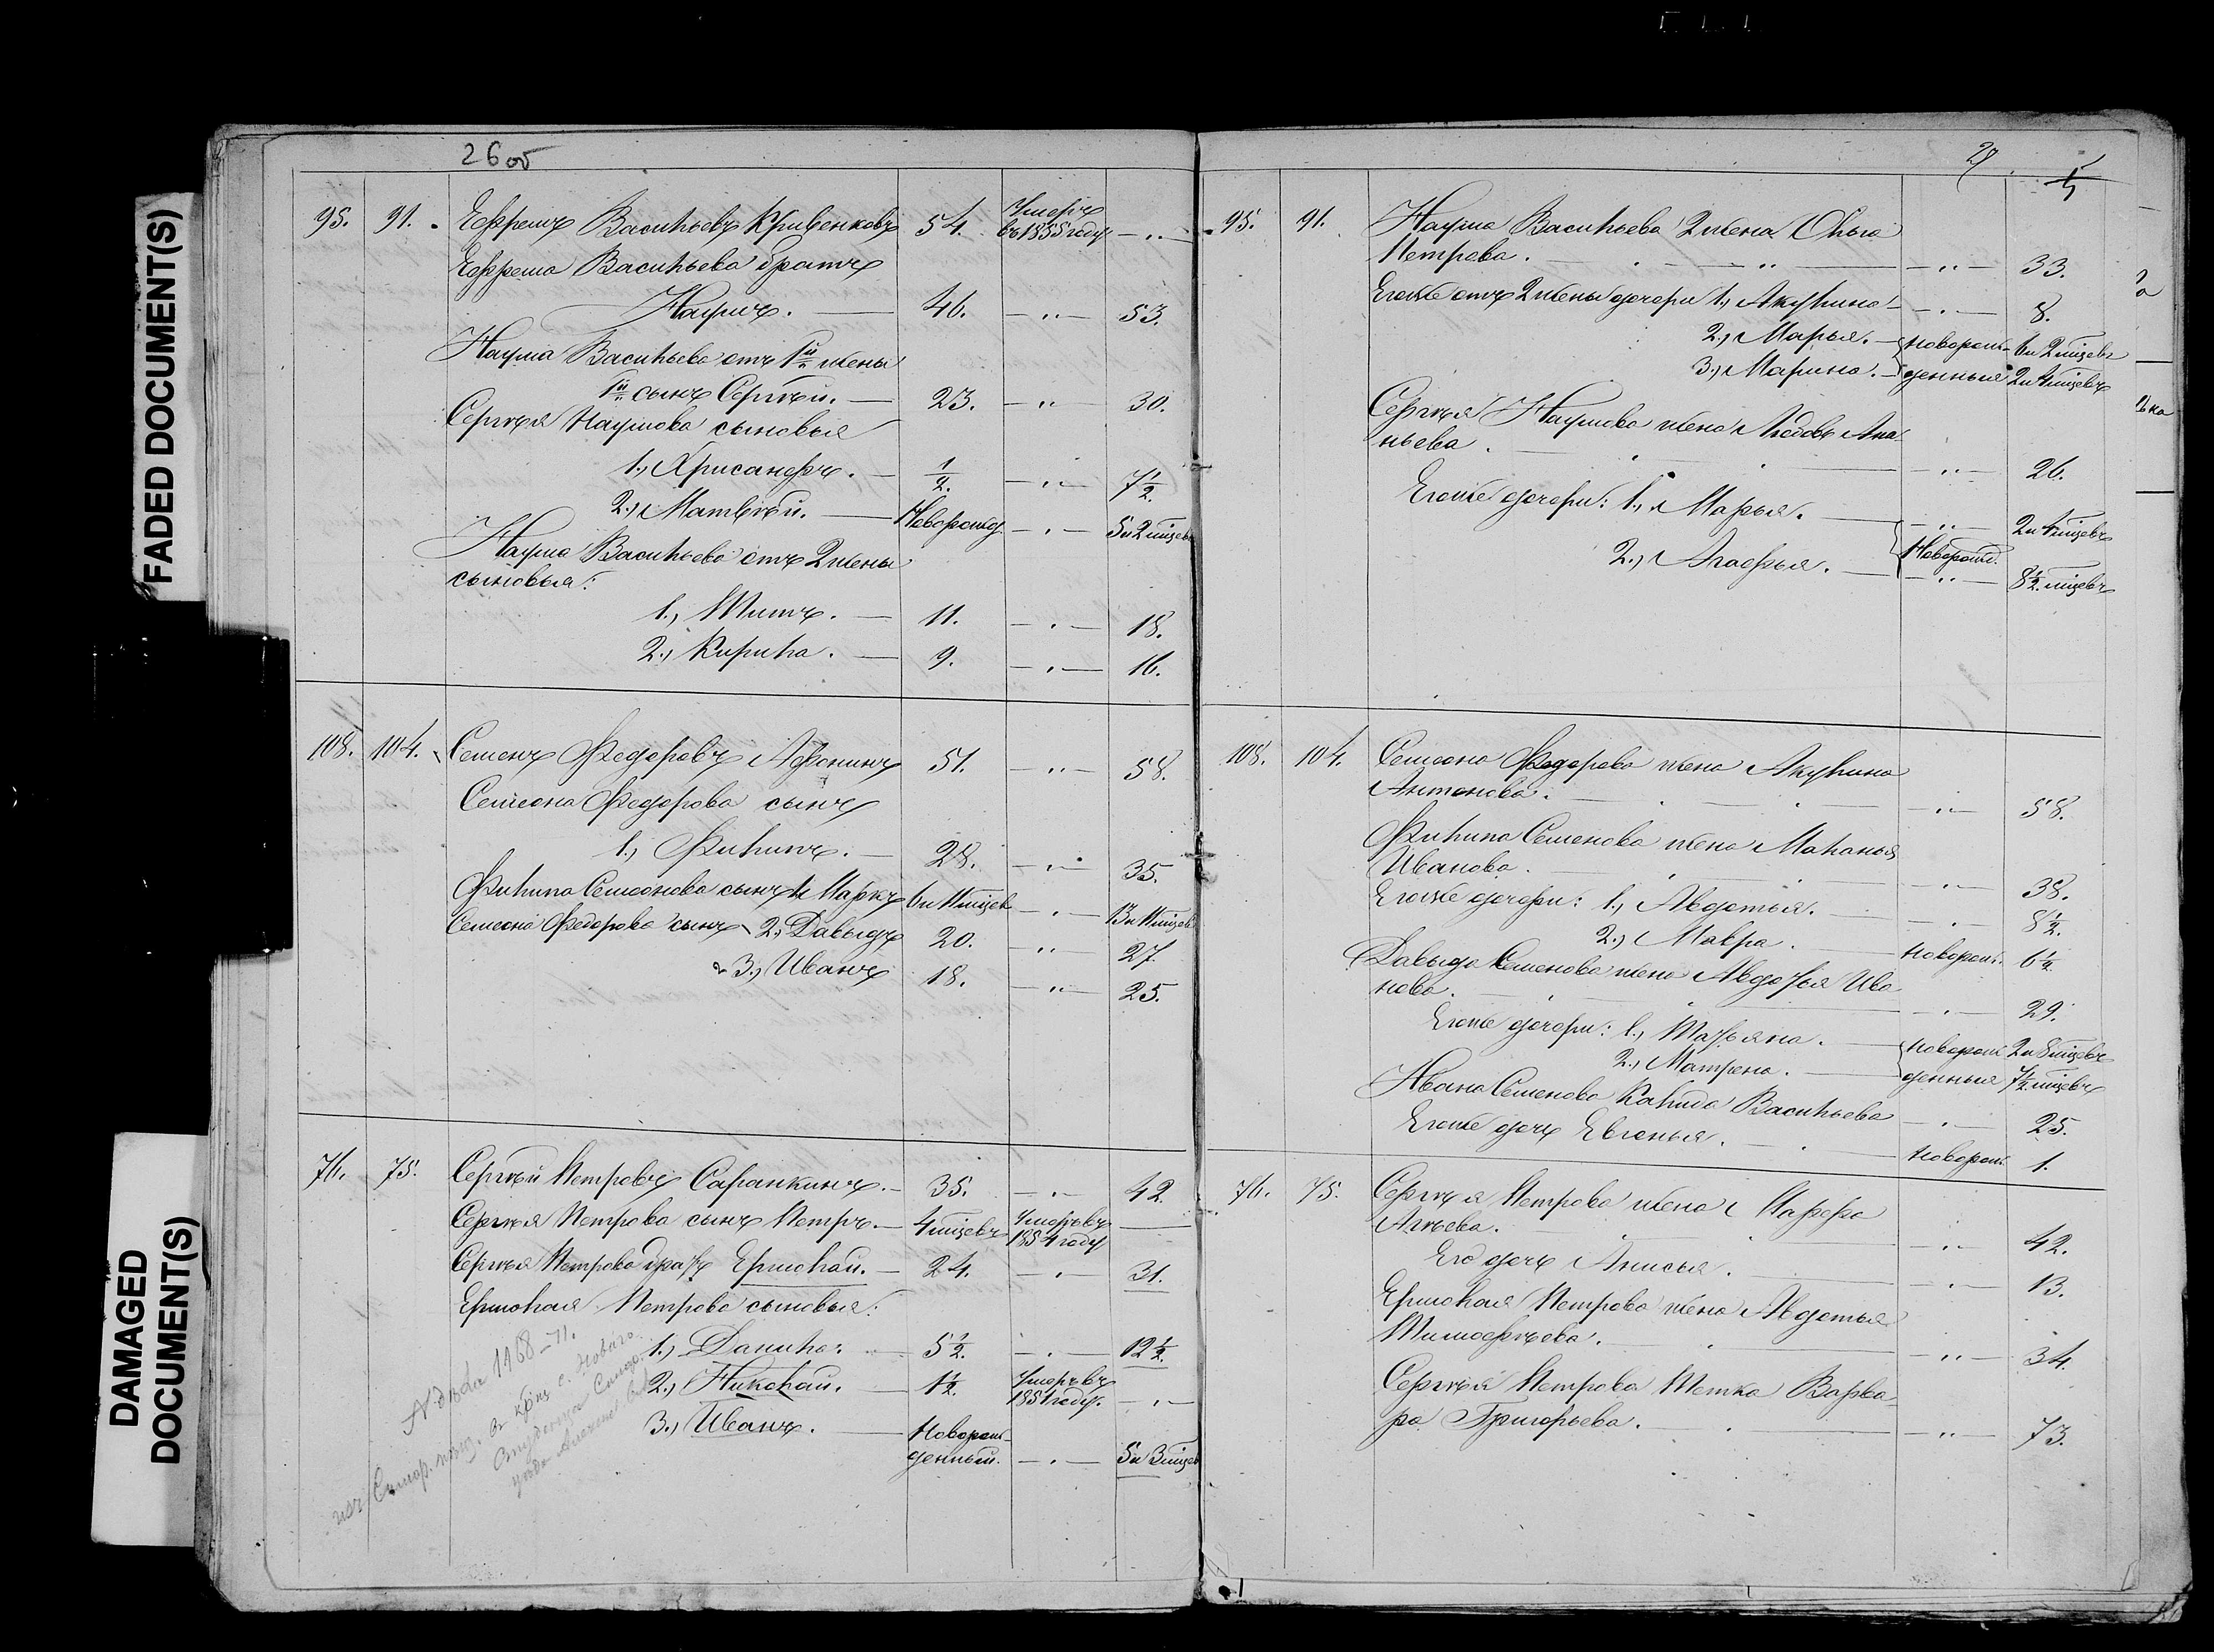 FADED DOCUMENT(S)
DAMAGED DOCUMENT(S)
26 об
95. 91. Ефремъ Васильевъ Кривенковъ 54. Умеръ въ 1855 году — „ —
Ефрема Васильева братъ
Наумъ. — 46. — „ — 53.
Наума Васильева отъ 1й жены
1й сынъ Сергѣй. — 23. — „ 30.
Сергѣя Наумова сыновья
1., Хрисанфъ. — 1/2. — „ — 7 1/2.
2., Матвѣй. — Новорожд. — „ — 5 и 2 мѣсяцев
Наума Васильева отъ 2 жены
сыновья:
1., Титъ. — 11. — „ — 18.
2., Кирила. — 9. — „ — 16.
108. 104. Семенъ Федоровъ Афонинъ 51. — „ — 58.
Семеона Федорова сынъ
1., Филипъ. — 28. — „ — 35.
Филипа Семеонова сынъ 1. Маркъ 6 и 11 мѣсяцев — „ — 13 и 11 мѣсяцев
Семеона Федорова сынъ 2., Давыдъ 20. — „ — 27.
3., Иванъ 18. — „ — 25.
76. 75. Сергѣй Петровъ Саранкинъ. — 35. — „ — 42.
Сергѣя Петрова сынъ Петръ. — 4 мѣсяцевъ Умеръ въ 1854 году —
Сергѣя Петрова братъ Ермолай. — 24. — „ — 31.
Ермолая Петрова сыновья:
1., Данила. — 5 1/2. — „ — 12 1/2.
2., Николай. — 1 1/2. Умеръ въ 1854 году. — „ —
3., Иванъ. — Новорож-
денный. — „ — 5 и 3 мѣсяцев
27
95. 91. Наума Васильева 2 жена Ольга
Петрова. — „ — 33.
Его же отъ 2 жены дочери 1., Акулина — „ — 8.
2., Марья. — новорож- 6 и 2 мѣсяцевъ
3., Марина. — денныя 2 и 4 мѣсяцевъ
Сергѣя Наумова жена Любовь Ана-
ньева. — „ — 26.
Его же дочери: 1., Марья. — „ — 2 и 4 мѣсяцевъ
Новорожд.
2., Агафья. — „ — 8 1/2 мѣсяцевъ
108. 104. Семеона Федорова жена Акулина
Антонова. — „ — 58.
Филипа Семенова жена Маланья
Иванова. — „ — 38.
Его же дочери: 1., Авдотья. — „ — 8 1/2.
2., Мавра. — новорож. 6 1/2
Давыда Семенова жена Авдотья Ива-
нова. — „ — 29.
Его же дочери: 1., Татьяна. — новорож- 2 и 8 мѣсяцевъ
2., Матрена. — денныя 7 1/2 мѣсяцевъ
Ивана Семенова Василиева — „ — 25.
Его же дочь Евгенья. — новорож. 1.
76. 75. Сергѣя Петрова жена Марфа
— „ — 42.
Его дочь Анисья. — „ — 13.
Ермолая Петрова жена Авдотья
Тимофѣева. — „ — 34.
Сергѣя Петрова Тетка Варва-
ра Григорьева. — „ — 73.